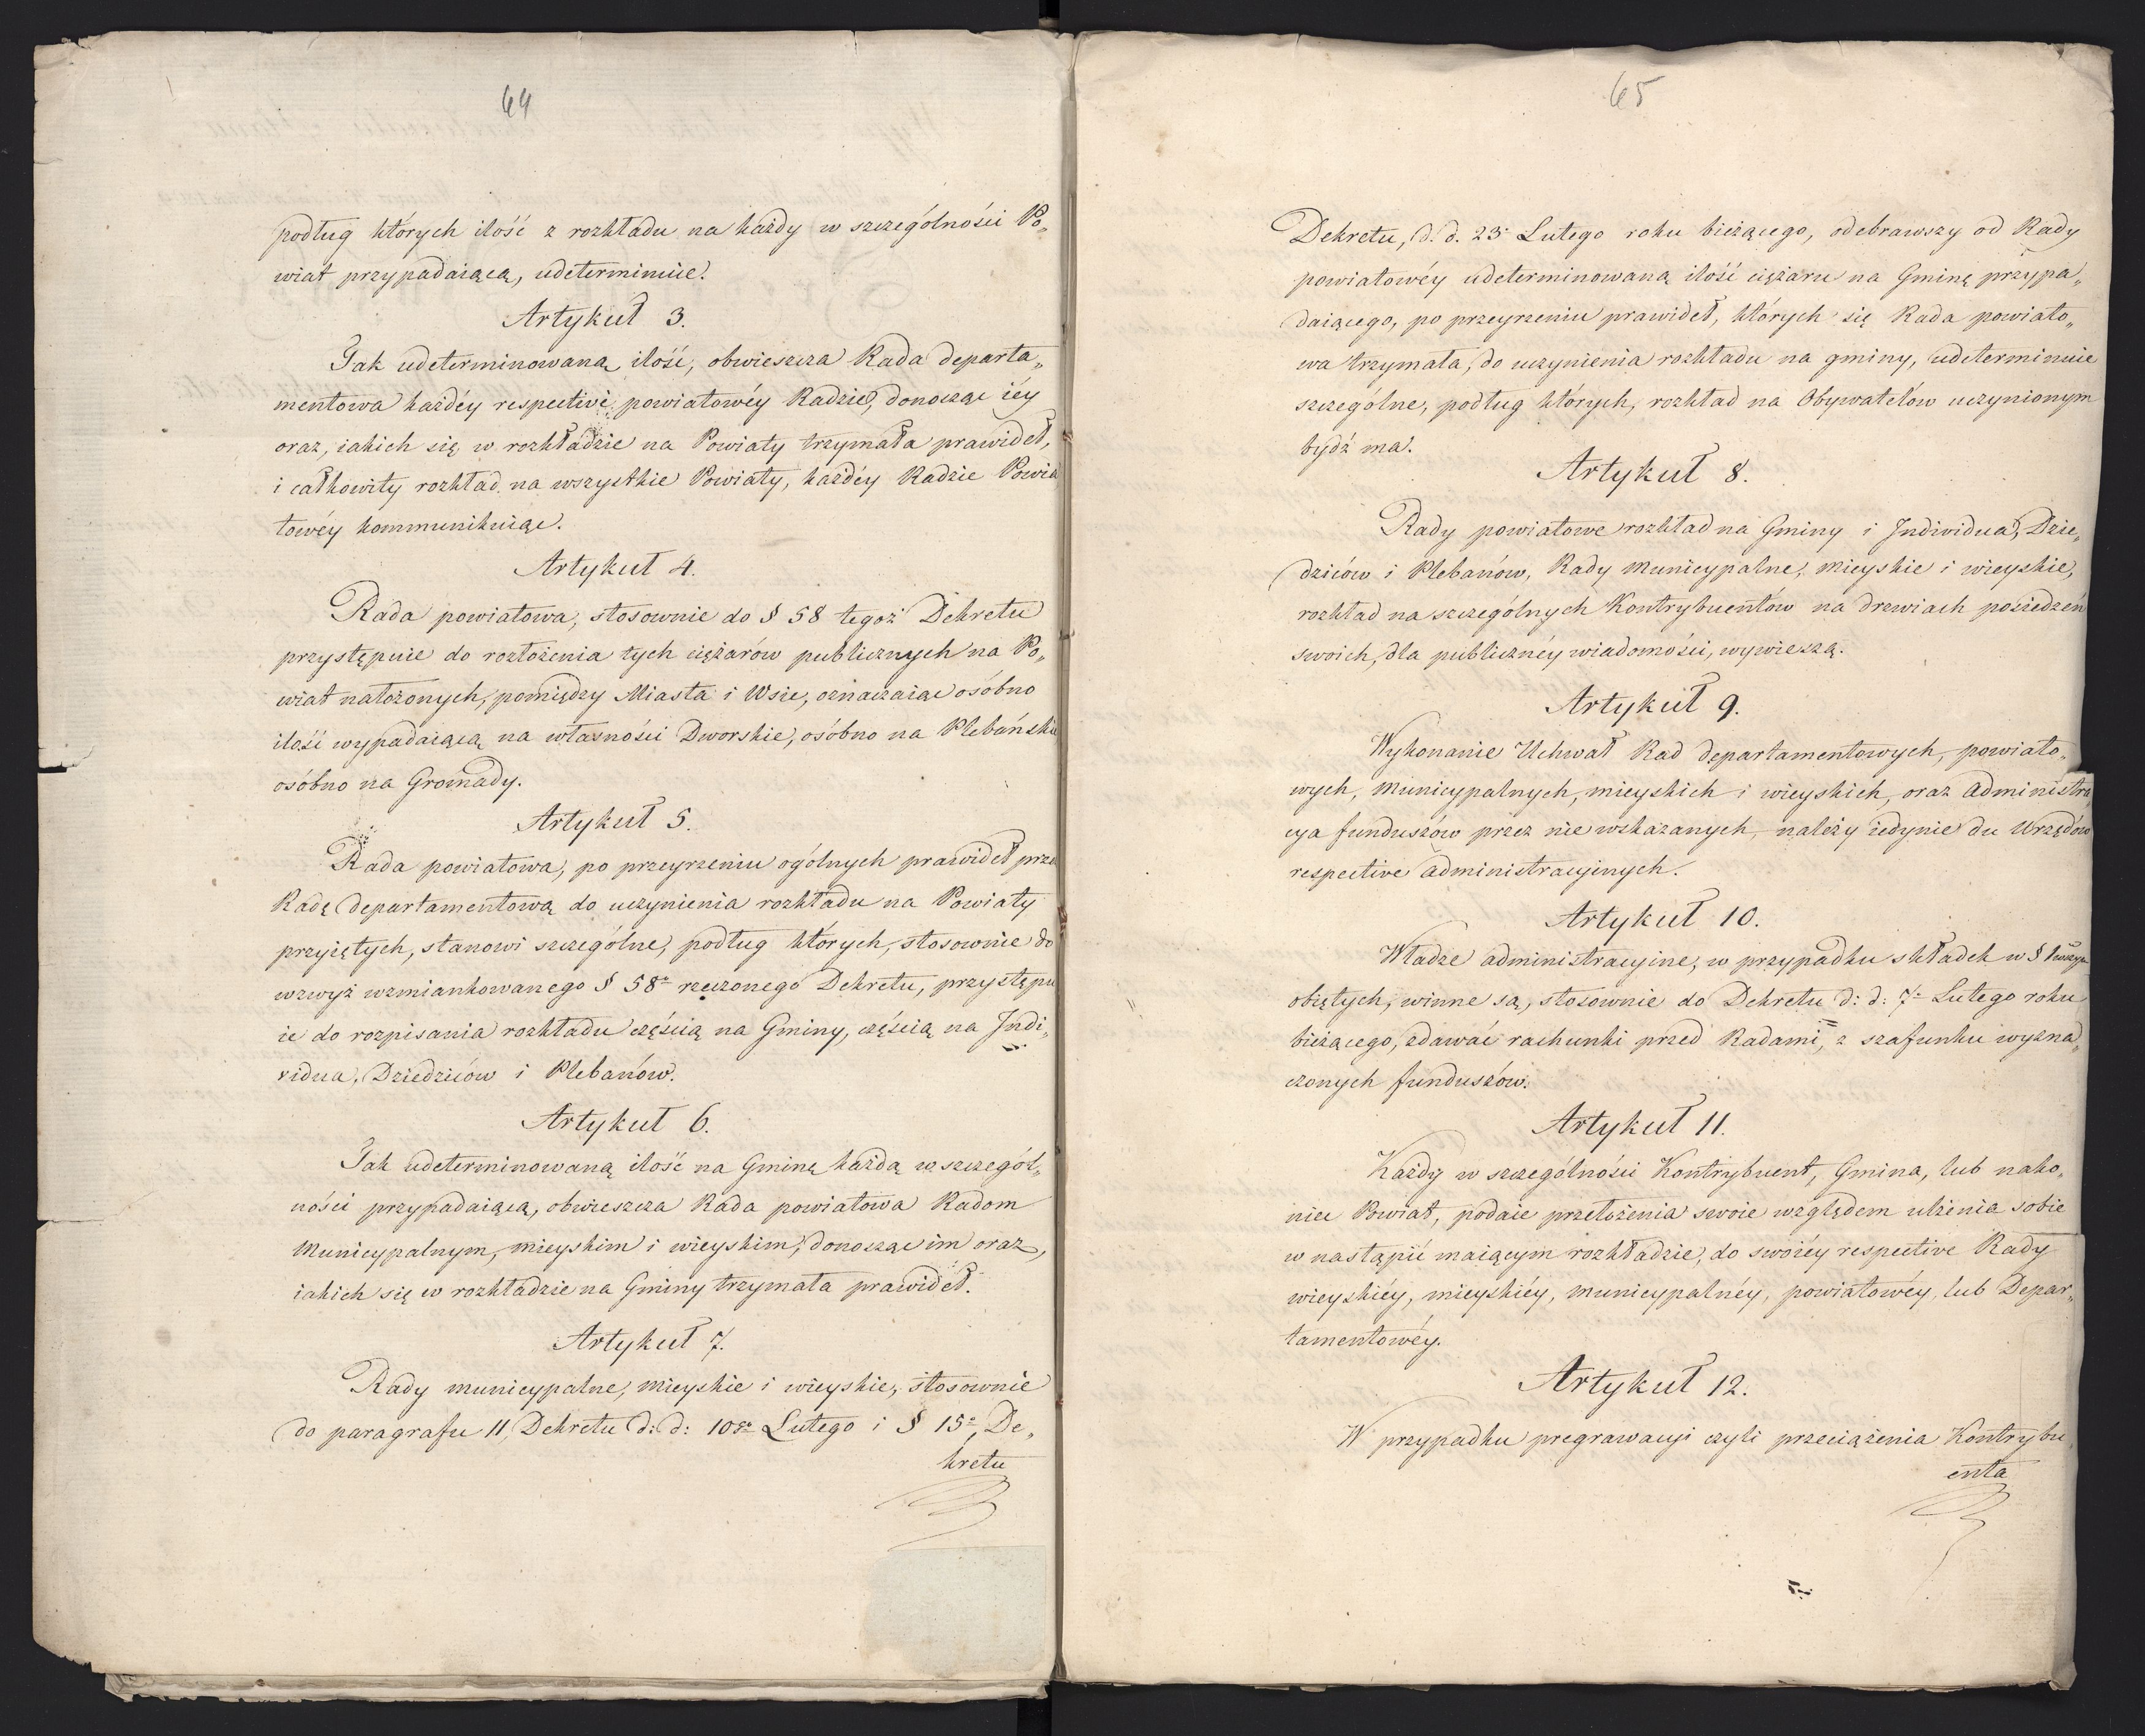 64
podług których ilość z rozkładu na każdy w szczególności Po„
wiat przypadaiącą, udeterminuie.
Artykuł 3.
Tak udeterminowaną ilość, obwieszcza Rada departa„
mentowa każdéy respective powiatowéy Radzie, donosząc iéy
oraz, iakich się w rozkładzie na Powiaty trzymała prawideł,
i całkowity rozkład na wszystkie Powiaty, każdéy Radzie Powia
towéy kommunikuiąc.
Artykuł 4.
Rada powiatowa, stosownie do § 58 tegoż Dekretu
przystępuie do rozłożenia tych ciężarów publicznych na Po„
wiat nałożonych, pomiędzy Miasta i Wsie, oznaczaiąc osóbno
ilość wypadaiącą na własności Dworskie, osóbno na Plebańskie
osóbno na Gromady.
Artykuł 5.
Rada powiatowa, po przeyrzeniu ogólnych prawideł prze
Radę departamentową do uczynienia rozkładu na Powiaty
przyiętych, stanowi szczególne, podług których, stosownie do
wzwyż wzmiankowanego § 58º rzeczonego Dekretu, przystępu
ie do rozpisania rozkładu częścią na Gminy, częścią na Indi„
vidua, Dziedziców i Plebanów.
Artykuł 6.
Tak udeterminowaną ilość na Gminę każdą w szczegól„
ności przypadaiącą, obwieszcza Rada powiatowa Radom
Municypalnym, mieyskim i wieyskim, donosząc im oraz,
iakich się w rozkładzie na Gminy trzymała prawideł.
Artykuł 7.
Rady municypalne, mieyskie i wieyskie, stosownie
do paragrafu 11, Dekretu d: d: 10go Lutego i § 15º, De„
kretu
65
Dekretu, d. d. 23º Lutego roku bieżącego, odebrawszy od Rady
powiatowéy udeterminowaną ilość ciężaru na Gminę przypa„
daiącego, po przeyrzeniu prawideł, których się Rada powiato„
wa trzymała, do uczynienia rozkładu na gminy, udeterminuie
szczególne, podług których, rozkład na Obywatelów uczynionym
bydź ma.
Artykuł 8.
Rady powiatowe rozkład na Gminy i Individua, Dzie„
dziców i Plebanów, Rady Municypalne, mieyskie i wieyskie,
rozkład na szczególnych Kontrybuentów na drzwiach posiedzeń
swoich, dla publicznéy wiadomości, wywieszą.
Artykuł 9.
Wykonanie Uchwał Rad departamentowych, powiato„
wych, Municypalnych, mieyskich i wieyskich, oraz Administra
cya funduszów przez nie wskazanych, należy iedynie du Urzędów
respective Administracyinych.
Artykuł 10.
Władze administracyine, w przypadku składek w § 1wszym
obiętych, winne są, stosownie do Dekretu d: d: 7º Lutego roku
bieżącego, zdawać rachunki przed Radami, z szafunku wyzna„
czonych funduszów.
Artykuł 11.
Każdy w szczególności Kontrybuent, Gmina, lub nako„
niec Powiat, podaie przełożenia swoie względem ulżenia sobie
w nastąpić maiącym rozkładzie, do swoiéy respective Rady
wieyskiéy, mieyskiéy, municypalnéy, powiatowéy, lub Depar„
tamentowéy.
Artykuł 12.
W przypadku pregrawacyi czyli przeciążenia Kontrybu„
enta